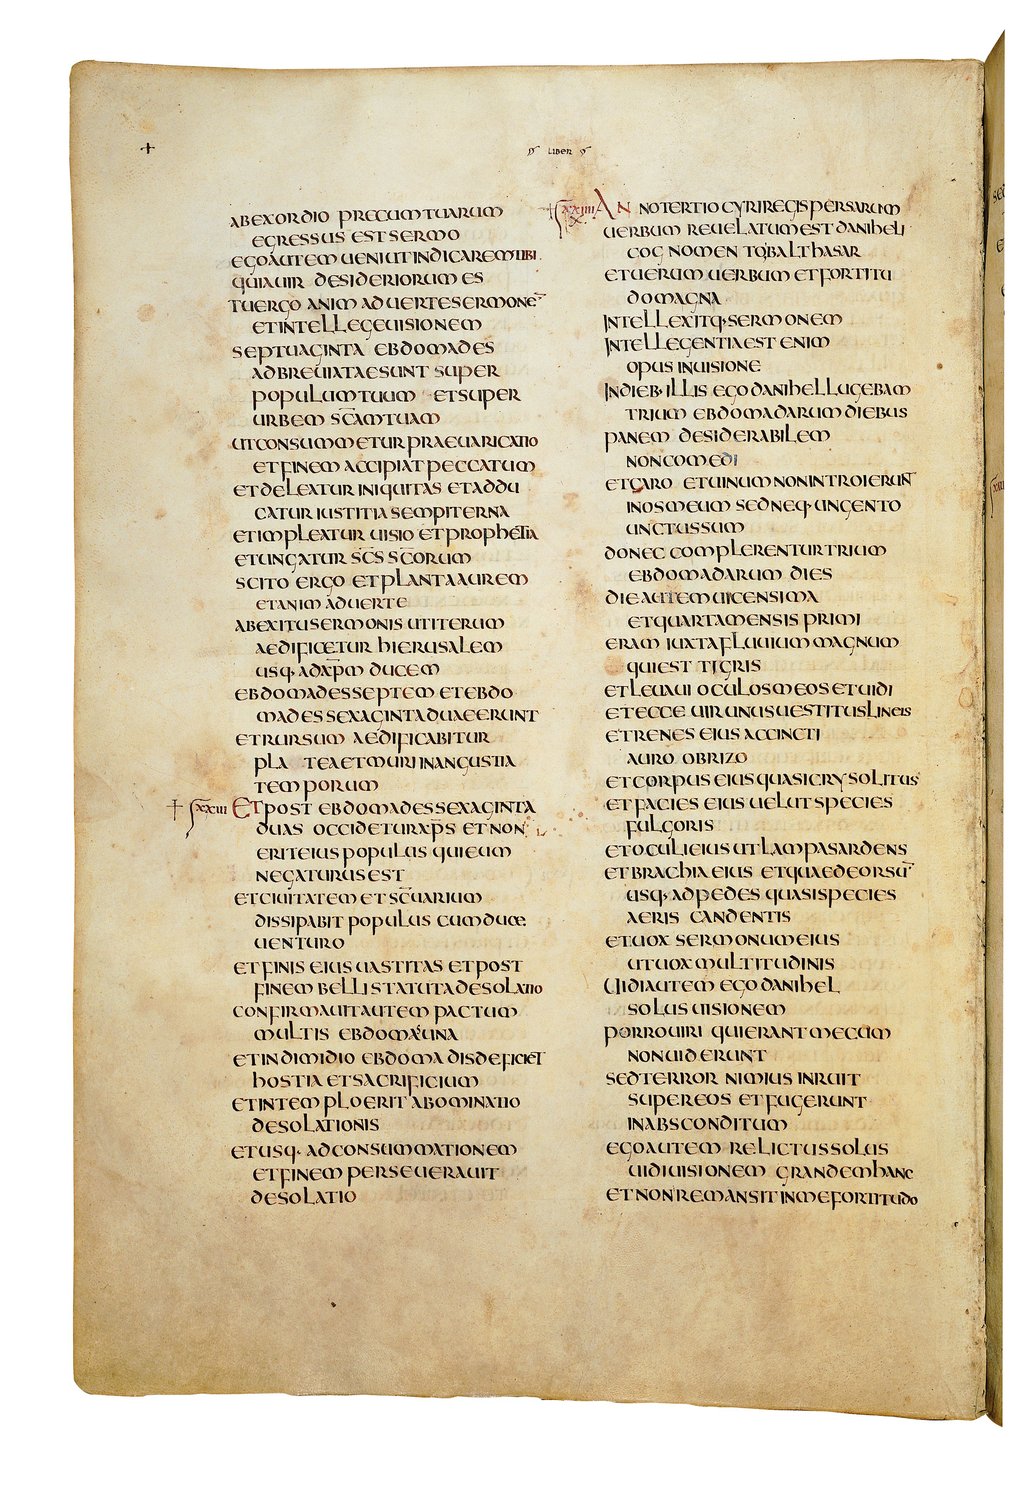 LIBER
AB EXORDIO PRECUM TUARUM
EGRESSUS EST SERMO
EGO AUTEM UENI UT INDICAREM TIBI
QUIA UIR DESIDERIORUM ES
TU ERGO ANIMADUERTE SERMONĒ
ET INTELLEGE UISIONEM
SEPTUAGINTA EBDOMADES
ADBREUIATAE SUNT SUPER
POPULUM TUUM ET SUPER
URBEM SC̄AM TUAM
UT CONSUMMETUR PRAEUARICATIO
ET FINEM ACCIPIAT PECCATUM
ET DELEATUR INIQUITAS ET ADDU
CATUR IUSTITIA SEMPITERNA
ET IMPLEATUR UISIO ET PROPHETIA
ET UNGATUR SC̄S SC̄ORUM
SCITO ERGO ET PLANTA AUREM
ET ANIMADUERTE
AB EXITU SERMONIS UT ITERUM
AEDIFICETUR HIERUSALEM
USQ· AD XP̄M DUCEM
EBDOMADES SEPTEM ET EBDO
MADES SEXAGINTA DUAE ERUNT
ET RURSUM AEDIFICABITUR
PLATEA ET MURI IN ANGUSTIA
TEMPORUM
xxiii ET POST EBDOMADES SEXAGINTA
DUAS OCCIDETUR XP̄S ET NON
ERIT EIUS POPULUS QUI EUM
NEGATURUS EST
ET CIUITATEM ET SC̄UARIUM
DISSIPABIT POPULUS CUM DUCE
UENTURO
ET FINIS EIUS UASTITAS ET POST
FINEM BELLI STATUTA DESOLATIO
CONFIRMAUIT AUTEM PACTUM
MULTIS EBDOMA UNA
ET IN DIMIDIO EBDOMADIS DEFICIET
HOSTIA ET SACRIFICIUM
ET IN TEMPLO ERIT ABOMINATIO
DESOLATIONIS
ET USQ· AD CONSUMMATIONEM
ET FINEM PERSEUERAUIT
DESOLATIO
xxiiii ANNO TERTIO CYRI REGIS PERSARUM
UERBUM REUELATUM EST DANIHELI
COGNOMENTO BALTHASAR
ET UERUM UERBUM ET FORTITU
DO MAGNA
INTELLEXITQ· SERMONEM
INTELLEGENTIA EST ENIM
OPUS IN UISIONE
IN DIEB· ILLIS EGO DANIHEL LUGEBAM
TRIUM EBDOMADARUM DIEBUS
PANEM DESIDERABILEM
NON COMEDI
ET CARO ET UINUM NON INTROIERUN̄
IN OS MEUM SED NEQ· UNGENTO
UNCTUS SUM
DONEC COMPLERENTUR TRIUM
EBDOMADARUM DIES
DIE AUTEM UICENSIMA
ET QUARTA MENSIS PRIMI
ERAM IUXTA FLUUIUM MAGNUM
QUI EST TIGRIS
ET LEUAUI OCULOS MEOS ET UIDI
ET ECCE UIR UNUS UESTITUS LINEIS
ET RENES EIUS ACCINCTI
AURO OBRIZO
ET CORPUS EIUS QUASI CRYSOLITUS
ET FACIES EIUS UELUT SPECIES
FULGORIS
ET OCULI EIUS UT LAMPAS ARDENS
ET BRACHIA EIUS ET QUAE DEORSŪ
USQ· AD PEDES QUASI SPECIES
AERIS CANDENTIS
ET UOX SERMONUM EIUS
UT UOX MULTITUDINIS
UIDI AUTEM EGO DANIHEL
SOLUS UISIONEM
PORRO UIRI QUI ERANT MECUM
NON UIDERUNT
SED TERROR NIMIUS INRUIT
SUPER EOS ET FUGERUNT
IN ABSCONDITUM
EGO AUTEM RELICTUS SOLUS
UIDI UISIONEM GRANDEM HANC
ET NON REMANSIT IN ME FORTITUDO